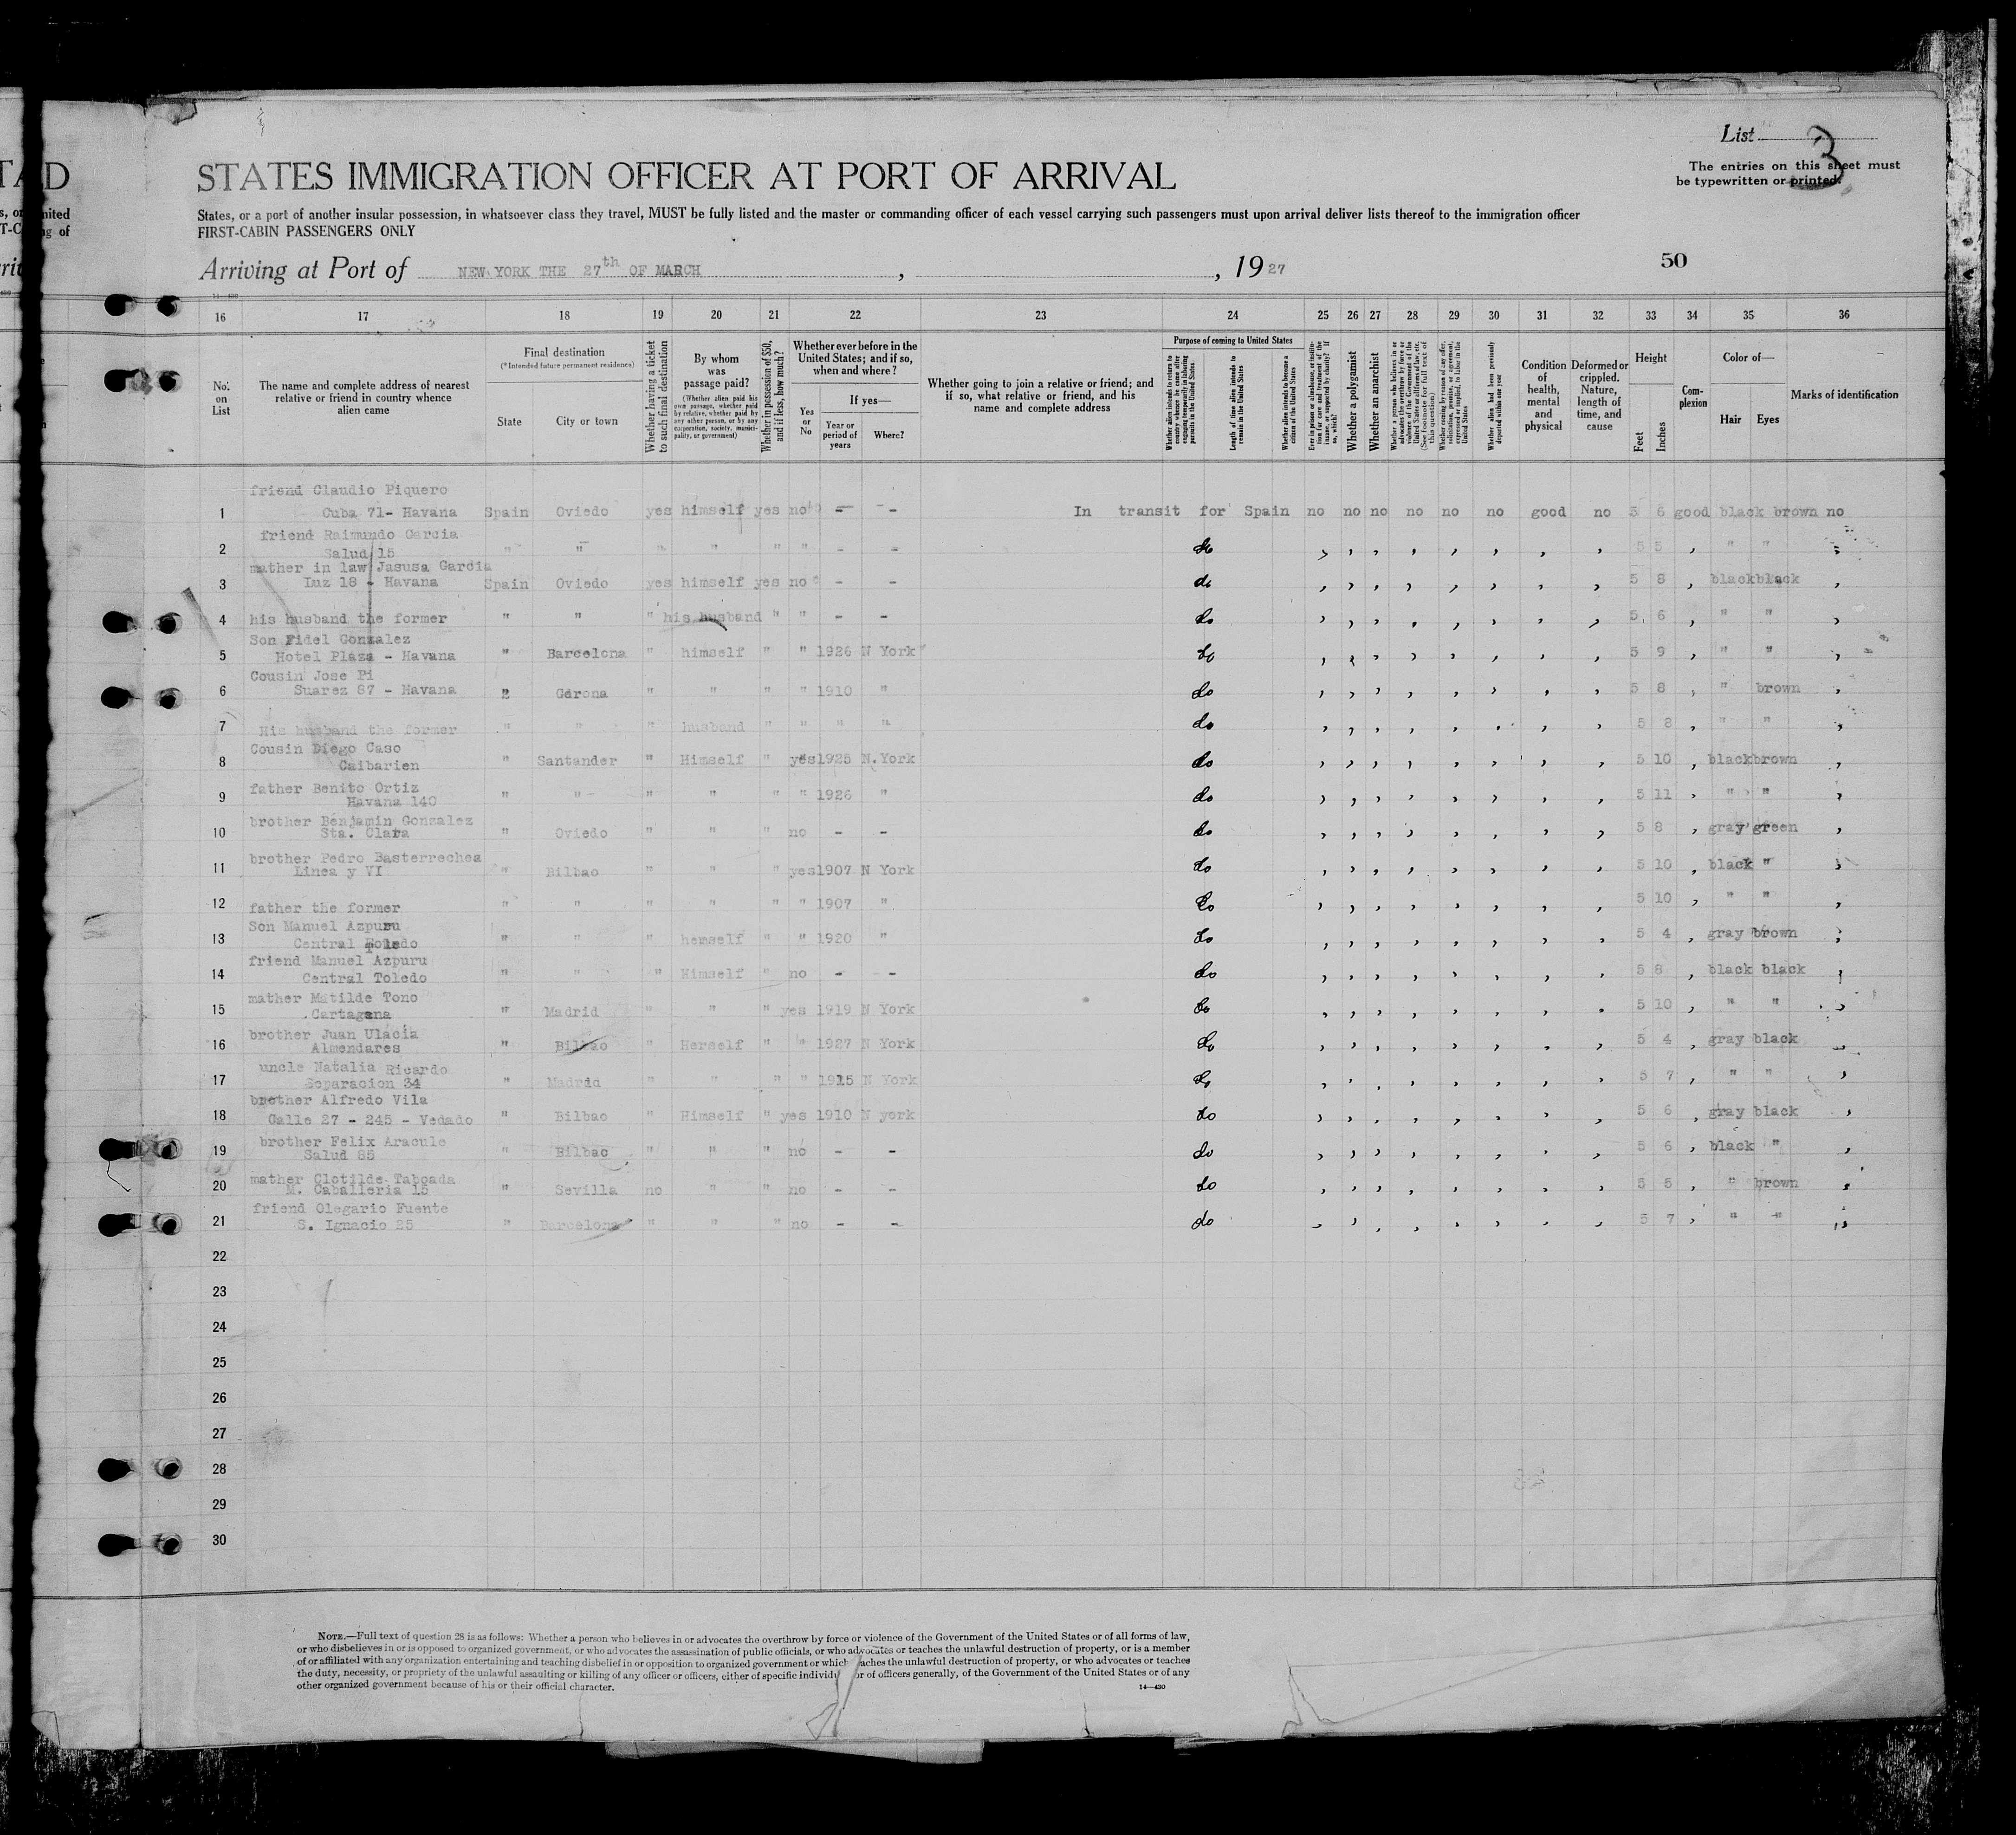 TAD
List 3
The entries on this sheet must
be typewritten or printed.
STATES IMMIGRATION OFFICER AT PORT OF ARRIVAL
States, or a port of another insular possession, in whatsoever class they travel, MUST be fully listed and the master or commanding officer of each vessel carrying such passengers must upon arrival deliver lists thereof to the immigration officer
FIRST-CABIN PASSENGERS ONLY
Arriving at Port of NEW YORK THE 27th OF MARCH , , 1927
50
14—430
16 17 18 19 20 21 22 23 24 25 26 27 28 29 30 31 32 33 34 35 36
No. on List
The name and complete address of nearest relative or friend in country whence alien came
Final destination
(*Intended future permanent residence)
State
City or town
Whether having a ticket to such final destination
By whom was passage paid?
(Whether alien paid his own passage, whether paid by relative, whether paid by any other person, or by any corporation, society, municipality, or government)
Whether in possession of $50, and if less, how much?
Whether ever before in the United States; and if so, when and where?
Yes or No
If yes—
Year or period of years
Where?
Whether going to join a relative or friend; and if so, what relative or friend, and his name and complete address
Purpose of coming to United States
Whether alien intends to return to country whence he came after engaging temporarily in laboring pursuits in the United States
Length of time alien intends to remain in the United States
Whether alien intends to become a citizen of the United States
Ever in prison or almshouse, or institution for care and treatment of the insane, or supported by charity? If so, which?
Whether a polygamist
Whether an anarchist
Whether a person who believes in or advocates the overthrow by force or violence of the Government of the United States or all forms of law, etc. (See footnote for full text of this question)
Whether coming by reason of any offer, solicitation, promise, or agreement, expressed or implied, to labor in the United States
Whether alien had been previously deported within one year
Condition of health, mental and physical
Deformed or crippled. Nature, length of time, and cause
Height
Feet
Inches
Complexion
Color of—
Hair
Eyes
Marks of identification
friend Claudio Piquero
1 Cuba 71- Havana Spain Oviedo yes himself yes no - - In transit for Spain no no no no no no good no 5 6 good black brown no
friend Raimundo Garcia
2 Salud 15 " " " " " " - - do , , , , , , , , 5 5 , " " ,
mather in law Jasusa Garcia
3 Luz 18 - Havana Spain Oviedo yes himself yes no - - do , , , , , , , , 5 8 , black black ,
4 his husband the former " " " his husband " " - - do , , , , , , , , 5 6 , " " ,
Son Fidel Gonzalez
5 Hotel Plaza - Havana " Barcelona " himself " " 1926 N York do , , , , , , , , 5 9 , " " ,
Cousin Jose Pi
6 Suarez 87 - Havana " Gerona " " " " 1910 " do , , , , , , , , 5 8 , " brown ,
7 His husband the former " " " husband " " " " do , , , , , , , , 5 8 , " " ,
Cousin Diego Caso
8 Caibarien " Santander " Himself " yes 1925 N.York do , , , , , , , , 5 10 , black brown ,
father Benito Ortiz
9 Havana 140 " " " " " " 1926 " do , , , , , , , , 5 11 , " " ,
brother Benjamin Gonzalez
10 Sta. Clara " Oviedo " " " no - - do , , , , , , , , 5 8 , gray green ,
brother Pedro Basterrechea
11 Linea y VI " Bilbao " " " yes 1907 N York do , , , , , , , , 5 10 , black " ,
12 father the former " " " " " " 1907 " do , , , , , , , , 5 10 , " " ,
Son Manuel Azpuru
13 Central Toledo " " " hemself " " 1920 " do , , , , , , , , 5 4 , gray brown ,
friend Manuel Azpuru
14 Central Toledo " " " Himself " no - - do , , , , , , , , 5 8 , black black ,
mather Matilde Tono
15 Cartagena " Madrid " " " yes 1919 N York do , , , , , , , , 5 10 , " " ,
brother Juan Ulacia
16 Almendares " Bilbao " Herself " " 1927 N York do , , , , , , , , 5 4 , gray black ,
uncle Natalia Ricardo
17 Separacion 34 " Madrid " " " " 1915 N York do , , , , , , , , 5 7 , " " ,
brother Alfredo Vila
18 Calle 27 - 245 - Vedado " Bilbao " Himself " yes 1910 N york do , , , , , , , , 5 6 , gray black ,
brother Felix Aracule
19 Salud 85 " Bilbao " " " no - - do , , , , , , , , 5 6 , black " ,
mather Clotilde Taboada
20 M. Caballeria 15 " Sevilla no " " no - - do , , , , , , , , 5 5 , " brown ,
friend Olegario Fuente
21 S. Ignacio 25 " Barcelona " " " no - - do , , , , , , , , 5 7 , " " ,
22
23
24
25
26
27
28
29
30
NOTE.—Full text of question 28 is as follows: Whether a person who believes in or advocates the overthrow by force or violence of the Government of the United States or of all forms of law,
or who disbelieves in or is opposed to organized government, or who advocates the assassination of public officials, or who advocates or teaches the unlawful destruction of property, or is a member
of or affiliated with any organization entertaining and teaching disbelief in or opposition to organized government or which teaches the unlawful destruction of property, or who advocates or teaches
the duty, necessity, or propriety of the unlawful assaulting or killing of any officer or officers, either of specific individuals or of officers generally, of the Government of the United States or of any
other organized government because of his or their official character.
14—430